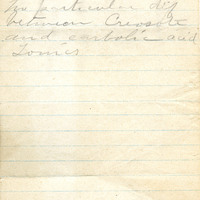 no particular dif
between Creosote
and carbolic acid
Tomes